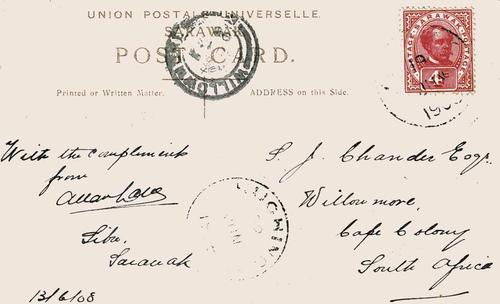 UNION POSTALE UNIVERSELLE.
SARAWAK
POST CARD.
Printed or Written Matter.
ADDRESS on this Side.
POSTAGE SARAWAK POSTAGE
WILLOWM
KUCHING
With the compliments
from
Sibu,
Sarawak
13/6/08
S. J. Chander Esqr.
Willowmore,
Cape Colony
South Africa